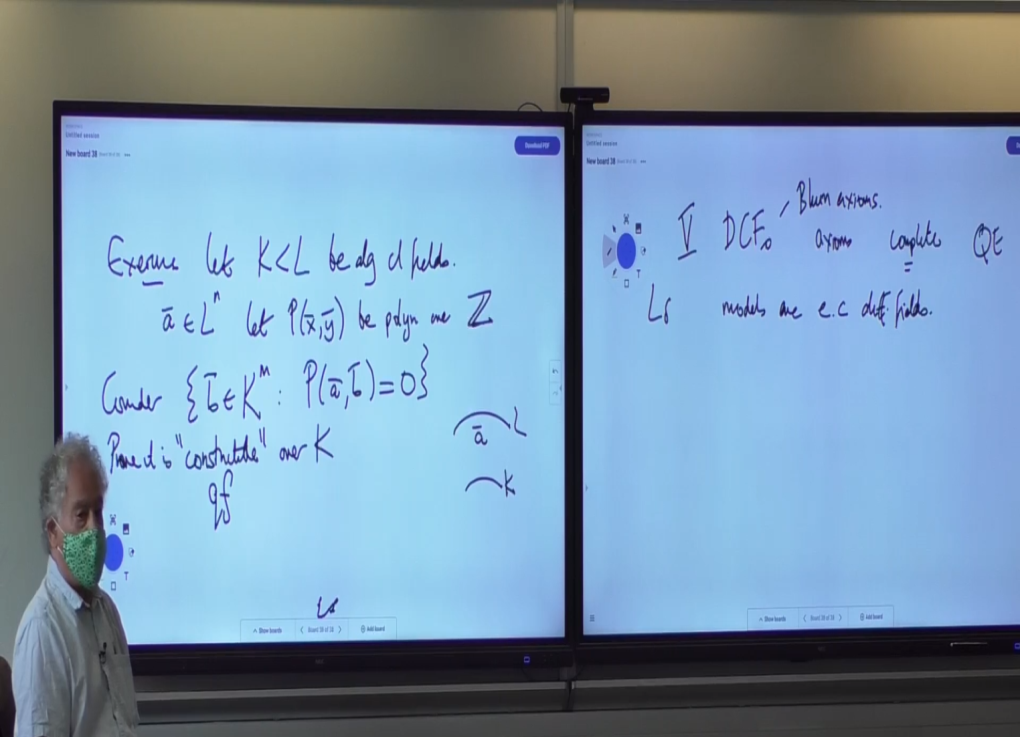 Untitled session
New board 38
Download PDF
Exercise let K < L be alg cl fields.
ā ∈ Lⁿ let P(x̄,ȳ) be polyn over ℤ
Consider {b̄ ∈ Kᵐ : P(ā,b̄) = 0}
Prove it is "constructible" over K
qf
ā L
K
Show boards
Board 38 of 38
Add board
Untitled session
New board 38
Blum axioms.
V DCF₀ axioms complete QE
models are e.c diff. fields.
Show boards
Board 38 of 38
Add board